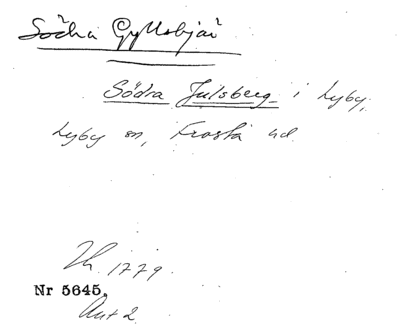 Södra Gyllsbjär
Södra Julsberg i Lyby,
Lyby sn, Frosta hd
Lh. 1779.
Nr 5645.
Akt 2